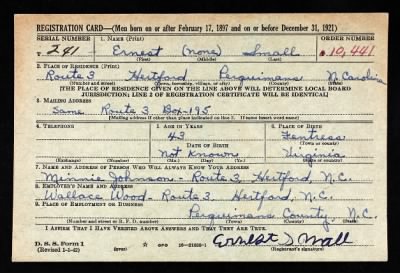 REGISTRATION CARD—(Men born on or after February 17, 1897 and on or before December 31, 1921)
SERIAL NUMBER 1. NAME (Print) ORDER NUMBER
T 241 Ernest (none) Small 10,441
(First) (Middle) (Last)
2. PLACE OF RESIDENCE (Print)
Route 3 Hertford Perquimans N Carolina
(Number and street) (Town, township, village, or city) (County) (State)
[THE PLACE OF RESIDENCE GIVEN ON THE LINE ABOVE WILL DETERMINE LOCAL BOARD
JURISDICTION; LINE 2 OF REGISTRATION CERTIFICATE WILL BE IDENTICAL]
3. MAILING ADDRESS
Same Route 3 Box-195
[Mailing address if other than place indicated on line 2. If same insert word same]
4. TELEPHONE 5. AGE IN YEARS 6. PLACE OF BIRTH
43 Fentress
DATE OF BIRTH (Town or county)
Not Known Virginia
(Exchange) (Number) (Mo.) (Day) (Yr.) (State or country)
7. NAME AND ADDRESS OF PERSON WHO WILL ALWAYS KNOW YOUR ADDRESS
Minnie Johnson - Route 3, Hertford, N.C.
8. EMPLOYER'S NAME AND ADDRESS
Wallace Wood - Route 3. Hertford, N.C.
9. PLACE OF EMPLOYMENT OR BUSINESS
Perquimans County, N.C.
(Number and street or R. F. D. number) (Town) (County) (State)
I AFFIRM THAT I HAVE VERIFIED ABOVE ANSWERS AND THAT THEY ARE TRUE.
D. S. S. Form 1
(Revised 1-1-42) GPO Ernest Small
(Registrant's signature)